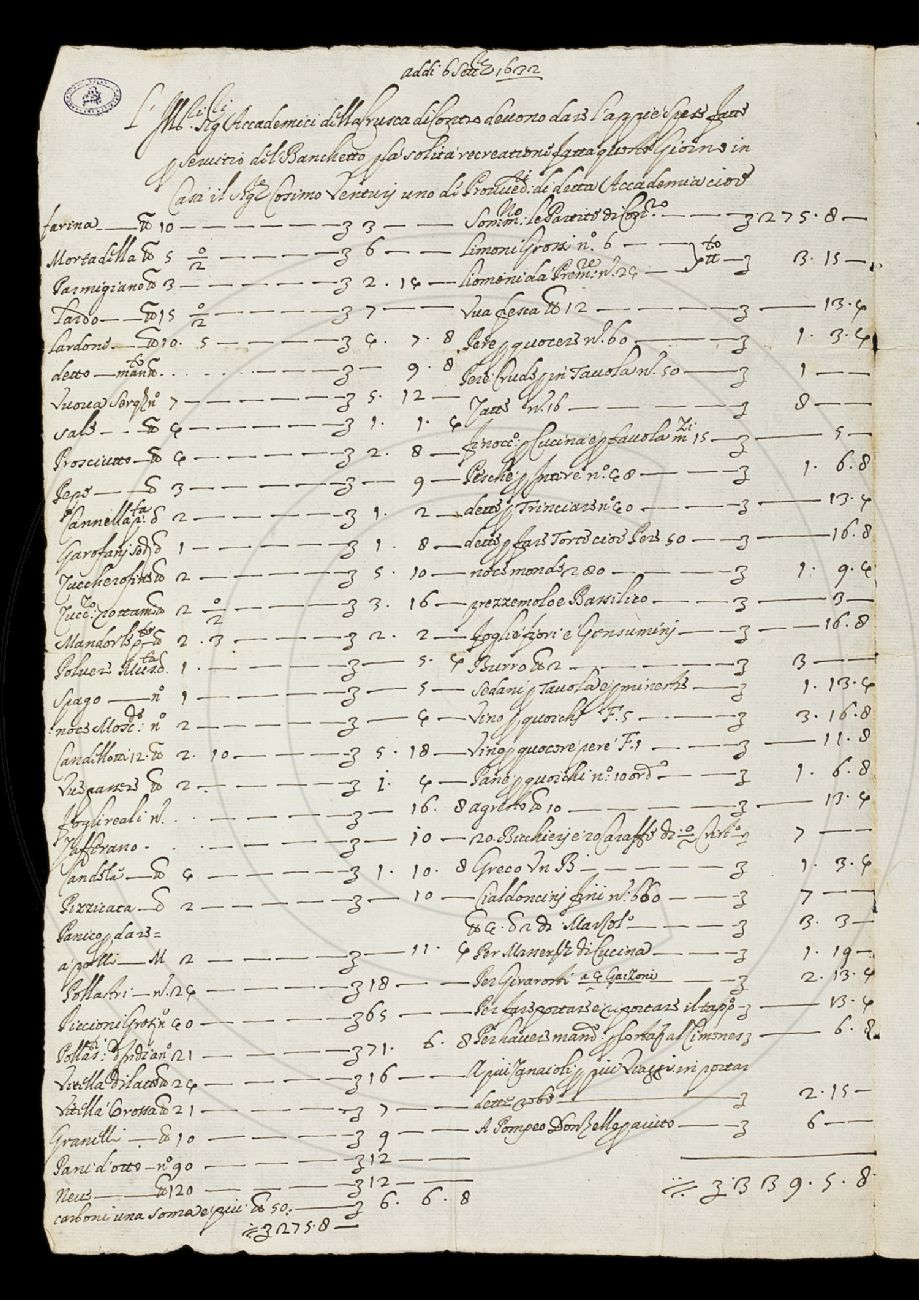 addi 6 Sett.e 1632
L' Ill.i Sig.i Accademici della Crusca di Contro devono dare l'appiè spese fatte
p servitio del Banchetto p la solita recreatione fatta questo Giorno in
Casa il Sig.r Cosimo Venturj uno de Proved.i di detta Accademia cioè
farina — lb 10 — 3 3 —
Mortadella lb 5 o/2 — 3 6 —
Parmigiano lb 3 — 3 2 . 14 —
Lardo — lb 15 o/2 — 3 7 —
Lardone — lb 10 . 5 — 3 4 . 7 . 8
detto — . . . — 3 — 9 . 8
Vuova Serq.e n.o 7 — 3 5 . 12 —
Sale — lb 4 — 3 1 . 1 . 4
Prosciutto — lb 4 — 3 2 . 8 —
Pepe — 3 — 3 — 9 —
Cannella p.a 2 — 3 1 . 2 —
Garofanj 1 — 3 1 . 8 —
Zucchero fine lb 2 — 3 5 . 10 —
Zucc.o rottame lb 2 o/2 — 3 3 . 16 —
Mandorle 2 . 3 — 3 2 . 2 —
Polvere 1 . — 3 — 5 . 4
Spago — n.o 1 — 3 — 5 —
noce Mosc.de n.o 2 — 3 — 4 —
Candellotti 12 . lb 2 . 10 — 3 5 . 18 —
Uve passere lb 2 . — 3 1 . 4 —
fogli reali n.o . . . — 3 — 16 . 8
Zafferano . . . — 3 — 10 —
Candele — lb 4 — 3 1 . 10 . 8
Pizzicata — 2 — 3 — 10 —
Panico p dare =
a polli — M 2 — 3 — 11 . 4
Pollastri — n.o 24 — 3 18 —
Piccioni Grossi n.o 40 — 3 65 —
Pollas.ri d'India n.o 21 — 3 71 . 6 . 8
Vitella di latte lb 24 — 3 16 —
Vitella Grossa lb 21 — 3 7 —
Granelli — lb 10 — 3 9 —
Pani d'otto — n.o 90 — 3 12 —
Neve — lb 120 — 3 12 —
carboni una soma e piu lb 50 . — 3 6 . 6 . 8
3 275 . 8 —
Somm.no le Partite di Con.o — 3 275 . 8 —
Limoni Grossi n.o 6 —
Limoni da Prem.re n.o 24 — } — 3 3 . 15 —
Uva fresca lb 12 — 3 — 13 . 4
Pere p quocere n.o 60 — 3 1 . 3 . 4
Pere Crude p in Tavola n.o 50 — 3 1 —
Dette n.o 16 — 3 8 —
finocc.o p Cucina e p tavola m.zi 15 — 3 — 5 —
Pesche p n.o 48 — 3 1 . 6 . 8
dette p Trinciare n.o 40 — 3 — 13 . 4
dette p fare Torte cioè Pere 50 — 3 — 16 . 8
noce monde 280 — 3 1 . 9 . 4
prezzemolo e Bassilico — 3 — 3 —
foglie fiori e Gensuminj — 3 — 16 . 8
Burro lb 2 — 3 3 —
Sedani p Tavola e p minestre — 3 1 . 13 . 4
Vino p quochi F. 5 — 3 3 . 16 . 8
Vino p quocere pere F. 1 — 3 — 11 . 8
Pane p quochi n.o 10 ord.e — 3 1 . 6 . 8
agresto lb 10 — 3 — 13 . 4
20 Bicchierj e 20 Caraffe di o/2 Crist.o 3 7 —
Greco Un B — 3 1 . 3 . 4
Cialdoncinj fini n.o 660 — 3 7 —
lb 4 . 2 di Marzol.o — 3 3 . 3 —
Per Masserizie di Cucina — 3 1 . 19 —
Per Girarosti a 4 Garzoni — 3 2 . 13 . 4
Per fare portare e riportare il tapp.o — 3 — 13 . 4
Per havere mand.o p fortezza al Cimonere 3 — 6 . 8
A piu Zanaioli p piu Viaggi in portar
dette robe — 3 2 . 15 —
A Pompeo Donzelle p aiuto — 3 6 —
3 339 . 5 . 8